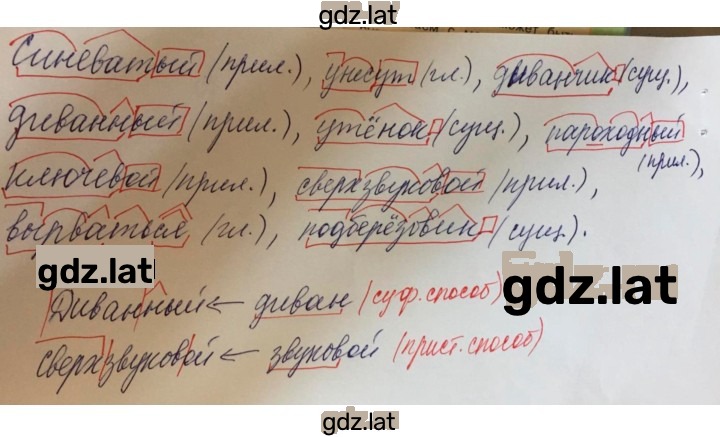 gdz.lat
Синеватый (прил.), унесут (гл.), диванчик (сущ.),
диванный (прил.), утёнок (сущ.), пароходный (прил.),
ключевой (прил.), сверхзвуковой (прил.),
вырваться (гл.), подберёзовик (сущ.).
gdz.lat
gdz.lat
Диванный ← диван (суф. способ)
сверхзвуковой ← звуковой (прист. способ)
gdz.lat